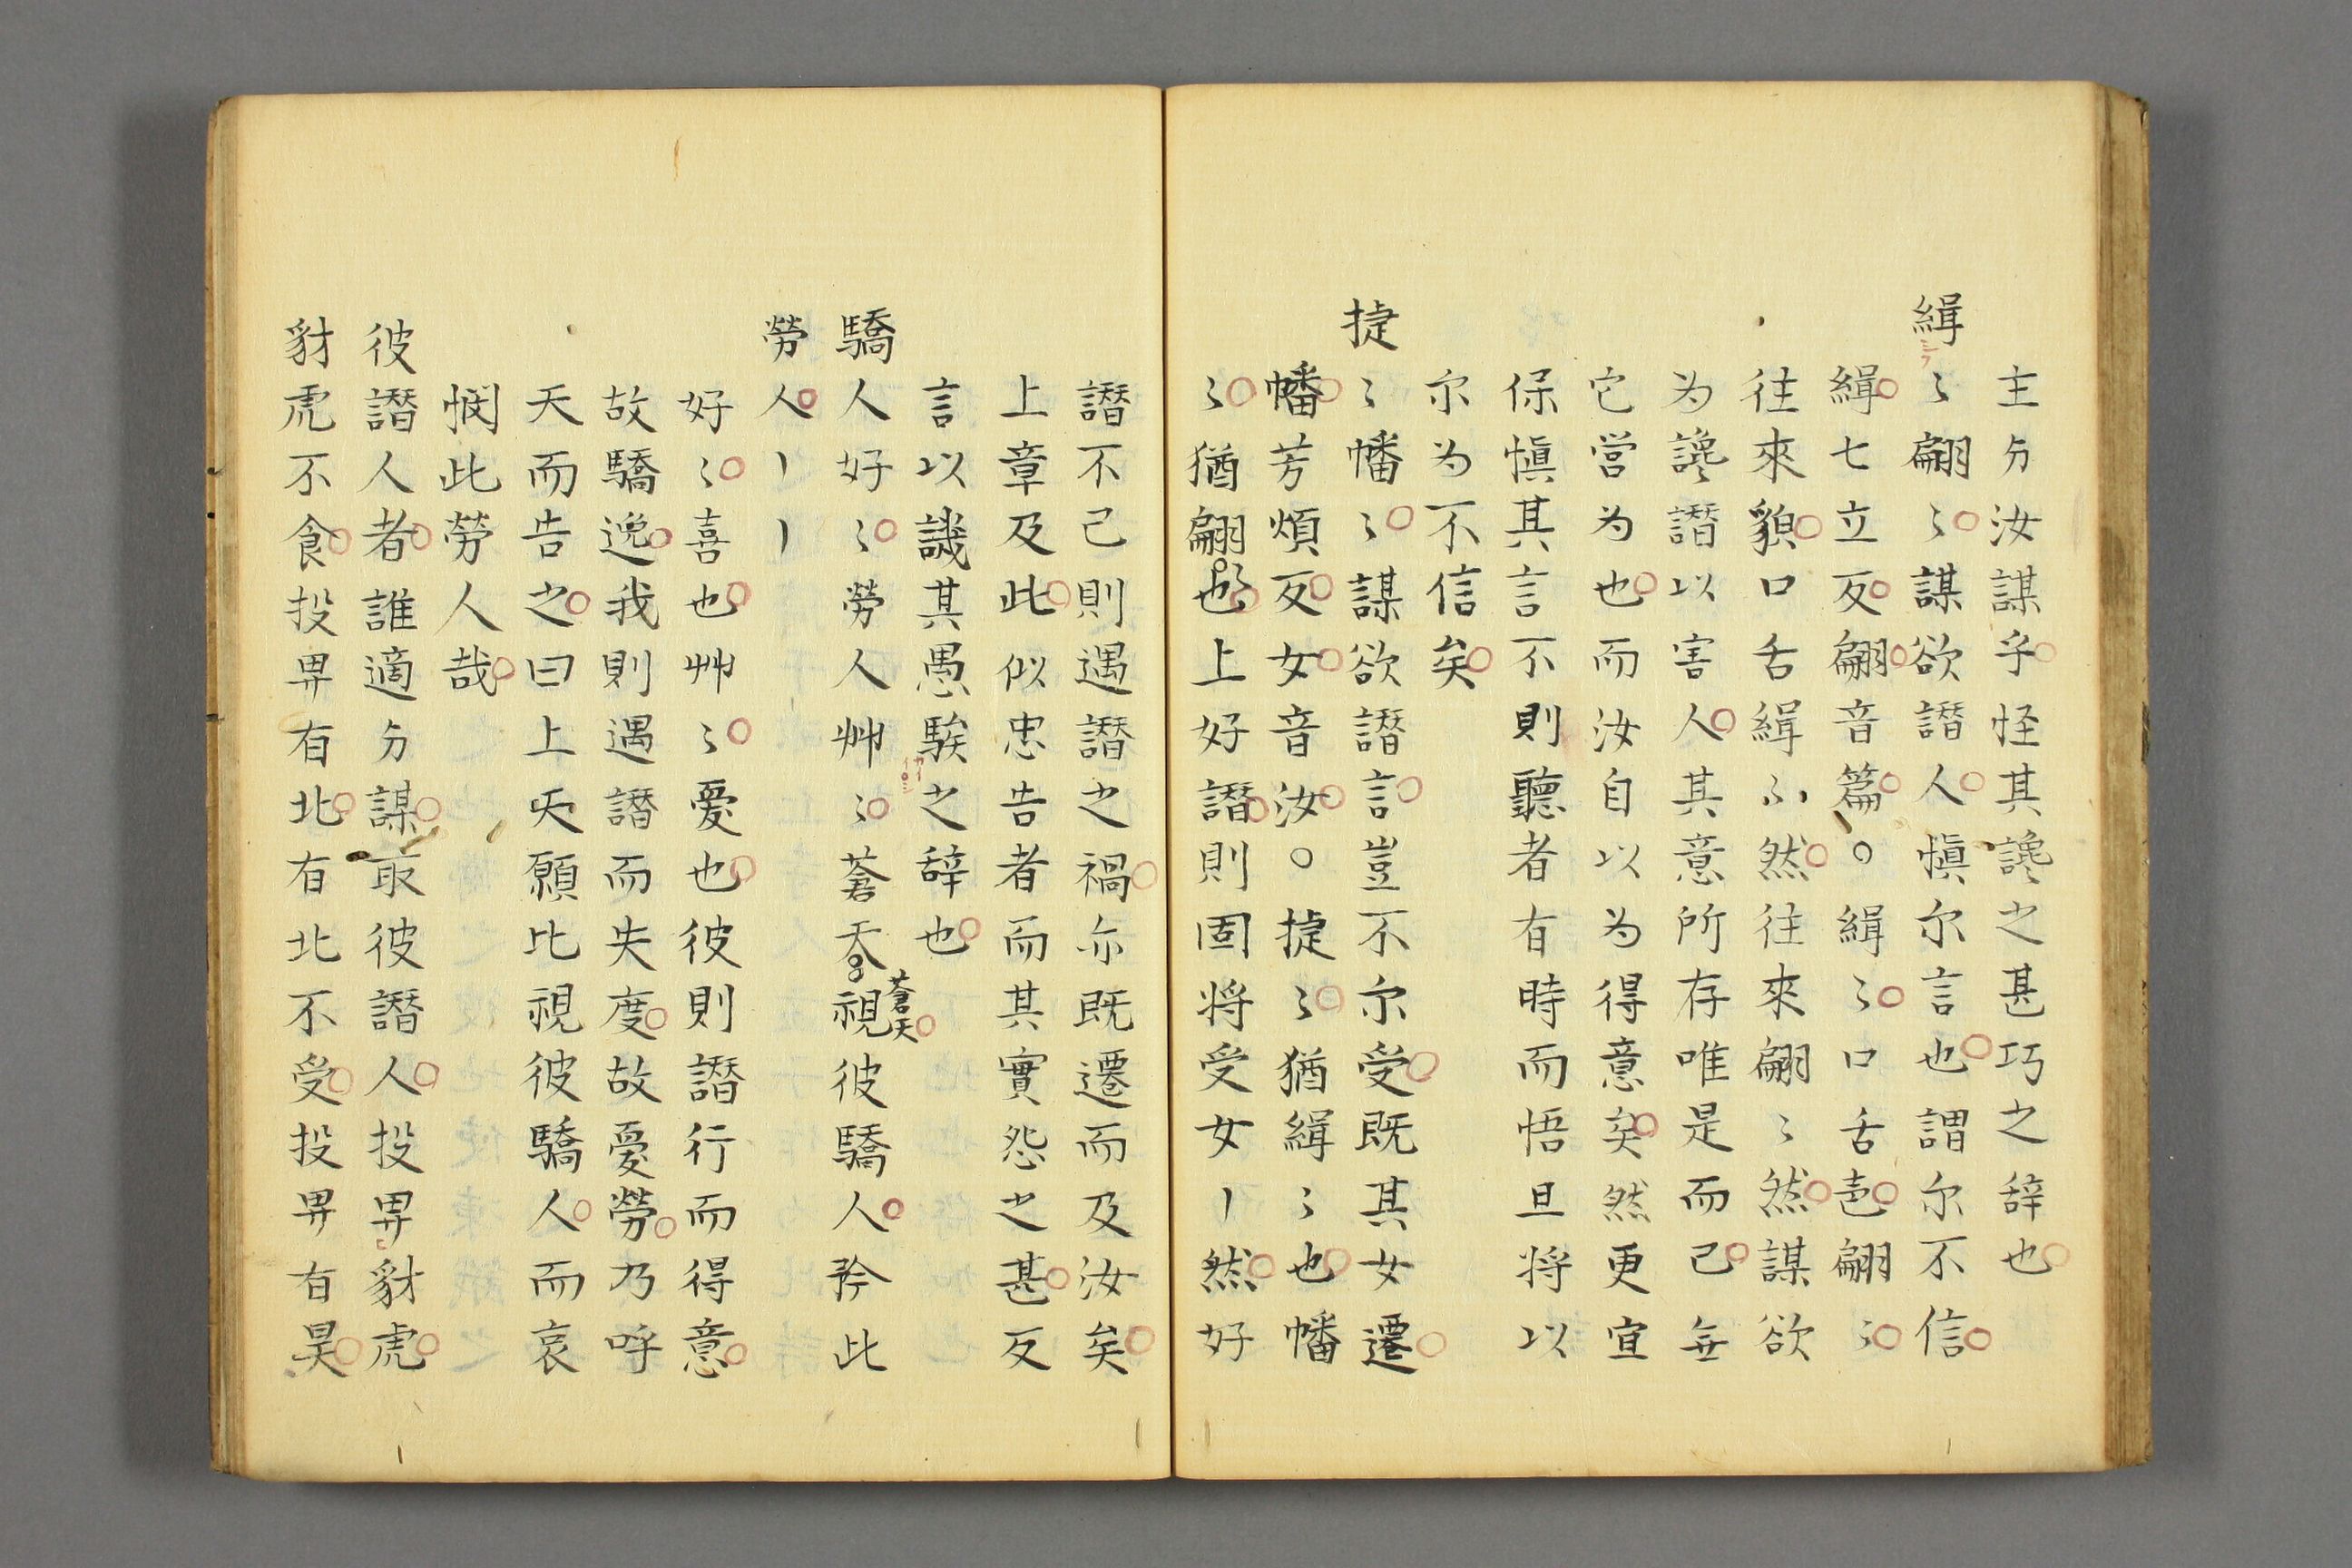 主与汝謀乎怪其讒之甚巧之辞也
緝〻翩〻謀欲譖人慎尓言也謂尓不信
緝七立反翩音篇○緝〻口舌㫗翩〻
往來貌口舌緝〻然往來翩〻然謀欲
为讒譖以害人其意所存唯是而已無
它営为也而汝自以为得意矣然更宜
保慎其言不則聽者有時而悟且将以
尓为不信矣
捷〻幡〻謀欲譖言豈不尓受既其女遷
幡芳煩反女音汝○捷〻猶緝〻也幡
〻猶翩〻也上好譖則固将受女丨然好
譖不已則遇譖之禍亦既遷而及汝矣
上章及此似忠告者而其實怨之甚反
言以譏其愚騃之辞也
驕人好〻勞人艸〻蒼天蒼天視彼驕人矜此
勞人丨丨
好〻喜也艸〻憂也彼則譖行而得意
故驕逸我則遇譖而失度故憂勞乃呼
天而告之曰上天願比視彼驕人而哀
憫此勞人哉
彼譖人者誰適与謀取彼譖人投畀豺虎
豺虎不食投畀有北有北不受投畀有昊